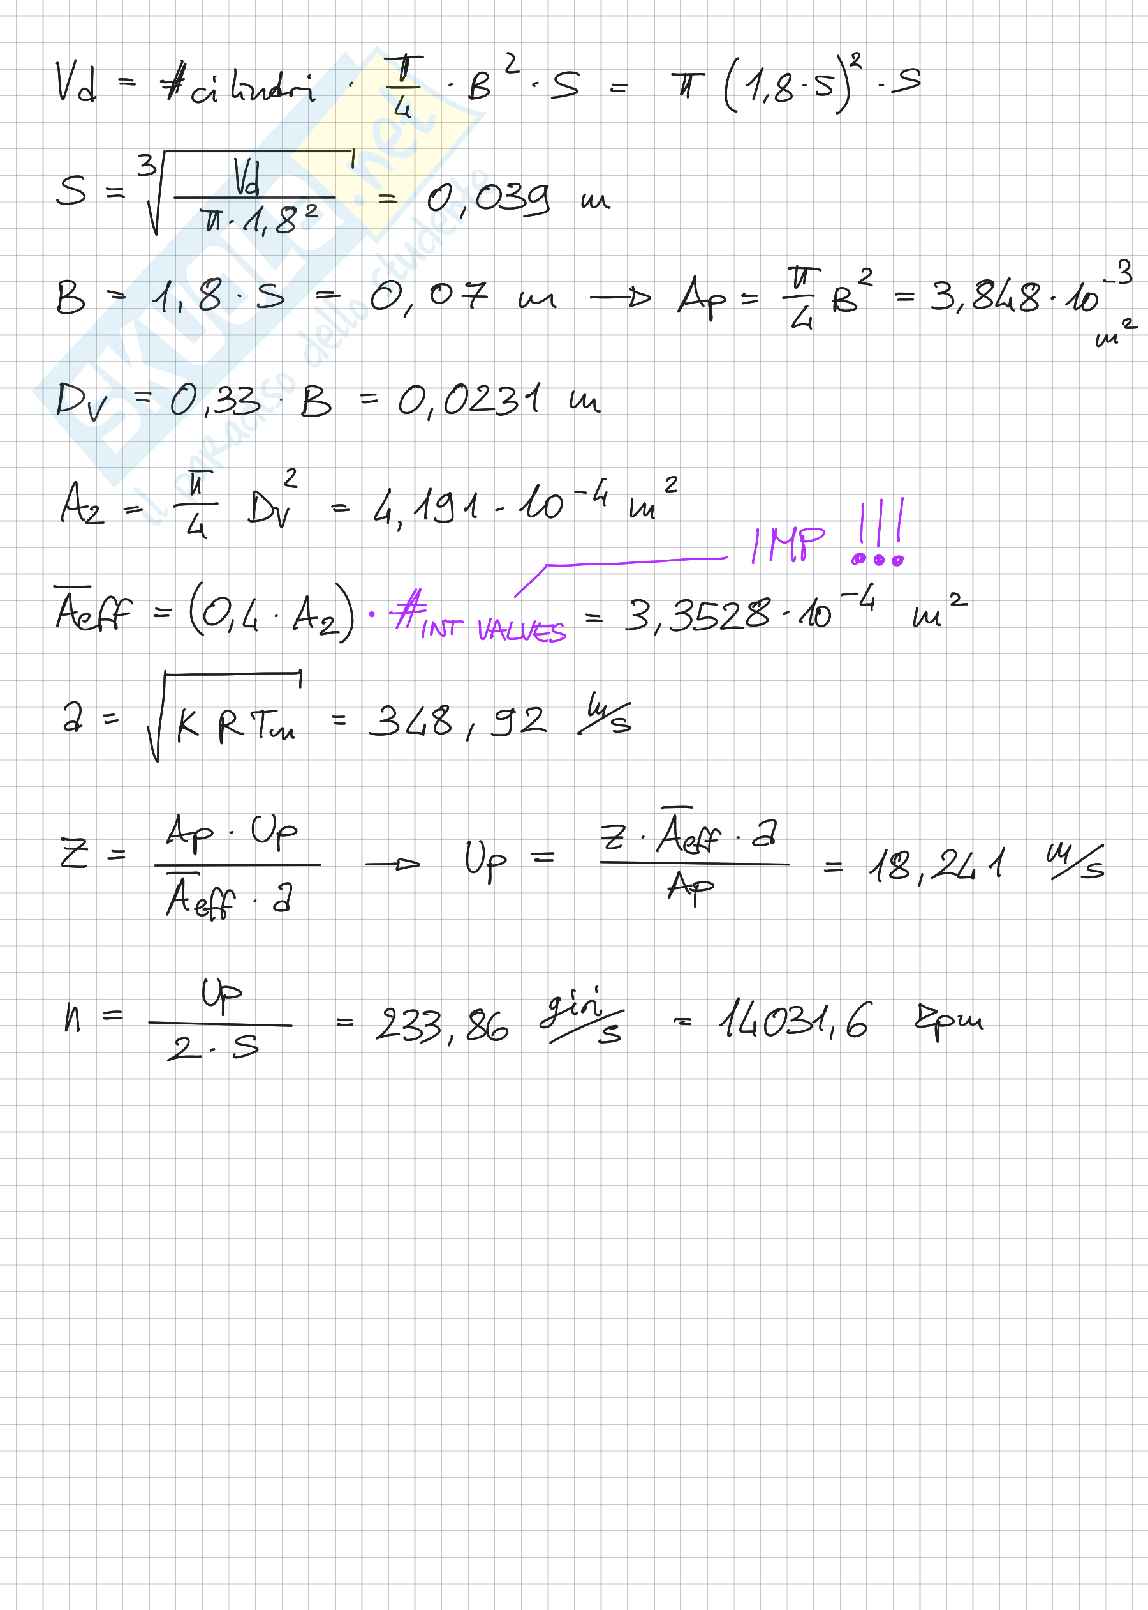 Vd = #cilindri · π/4 · B² · S = π (1,8·S)² · S
S = ³√(Vd / (π·1,8²)) = 0,039 m
B = 1,8 · S = 0,07 m → Ap = π/4 B² = 3,848·10⁻³ m²
Dv = 0,33 · B = 0,0231 m
A2 = π/4 Dv² = 4,191·10⁻⁴ m²
IMP !!!
A̅eff = (0,4 · A2) · # INT VALVES = 3,3528·10⁻⁴ m²
a = √(K R Tm) = 348,92 m/s
Z = (Ap · Up) / (A̅eff · a) → Up = (Z · A̅eff · a) / Ap = 18,241 m/s
n = Up / (2·S) = 233,86 giri/s = 14031,6 rpm
SKUOLA.net
il paradiso dello studente